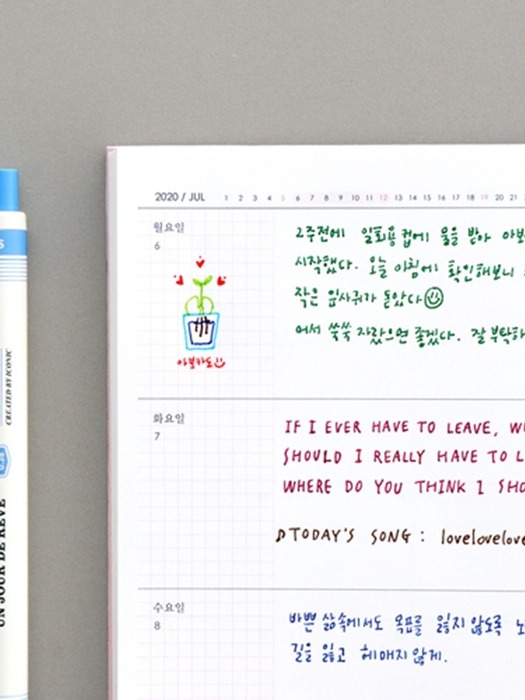 2020 / JUL 1 2 3 4 5 6 7 8 9 10 11 12 13 14 15 16 17 18 19 20 21
월요일
6
2주전에 일회용 컵에 물을 받아 아보
시작했다. 오늘 아침에 확인해보니
작은 잎사귀가 돋았다
어서 쑥쑥 자랐으면 좋겠다. 잘 부탁하
아보카도
화요일
7
IF I EVER HAVE TO LEAVE, W
SHOULD I REALLY HAVE TO L
WHERE DO YOU THINK I SHO
TODAY'S SONG : lovelovelove
수요일
8
바쁜 삶속에서도 목표를 잃지 않도록
길을 잃고 헤매지 않게.
CREATED BY ICONIC
UN JOUR DE REVE
0.38
S